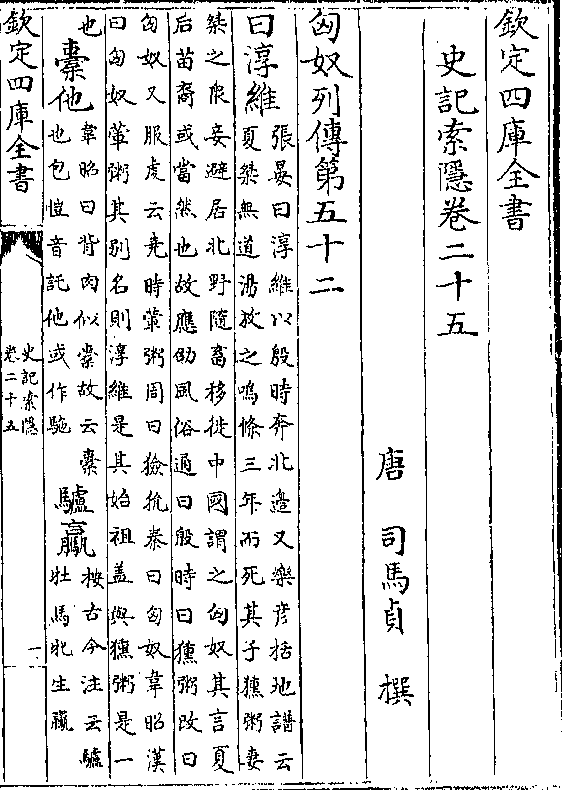 欽定四庫全書
史記索隱卷二十五
唐 司馬貞 撰
匈奴列傳第五十二
曰淳維張晏曰淳維以殷時奔北邉又樂彦括地譜云
夏桀無道湯放之鳴條三年而死其子獯粥妻
桀之衆妾避居北野隨畜移徙中國謂之匈奴其言夏
后苗裔或當然也故應劭風俗通曰殷時曰獯粥改曰
匈奴又服虔云堯時葷粥周曰獫狁秦曰匈奴韋昭漢
曰匈奴葷粥其别名則淳維是其始祖盖與獯粥是一
也 橐他韋昭曰背肉似橐故云橐
也包愷音託他或作駞 驢驘按古今注云驢
牡馬牝生驘
欽定四庫全書
史記索隱
卷二十五
一